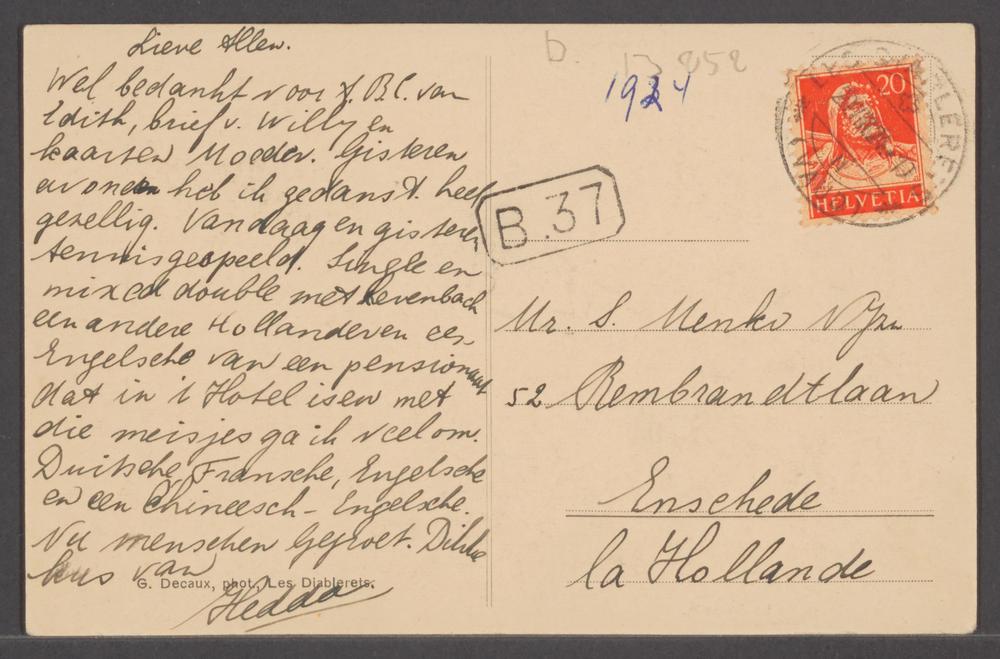 Lieve Allen.
Wel bedankt voor f. B.C. van
Edith, brief v. Willy en
kaarten Moeder. Gisteren
avond heb ik gedanst. heel
gezellig. Vandaag en gisteren
tennisgespeeld. Single en
mixed double met Levenbach
een andere Hollander en een
Engelsche van een pensionaat
dat in 't Hotel is en met
die meisjes ga ik veel om.
Duitsche, Fransche, Engelsche
en een Chineesch-Engelsche.
Nu menschen gegroet. Dikke
kus van
Hedda
G. Decaux, phot., Les Diablerets.
b. 13852
1924
20
HELVETIA
B.37
Mr. S. Menko
52 Rembrandtlaan
Enschede
la Hollande